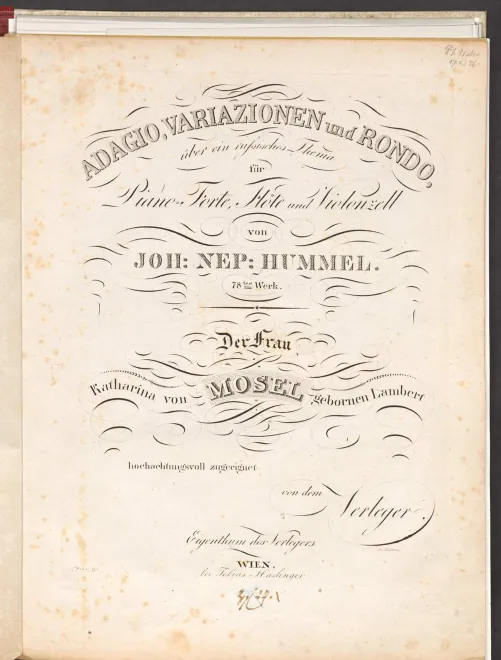 ADAGIO, VARIAZIONEN und RONDO,
über ein russisches Thema
für
Piano-Forte, Flöte und Violonzell
von
JOH: NEP: HUMMEL.
78tes Werk.
Der Frau
Katharina von MOSEL gebornen Lambert
hochachtungsvoll zugeeignet
von dem Verleger.
Eigenthum des Verlegers.
WIEN.
bei Tobias Haslinger